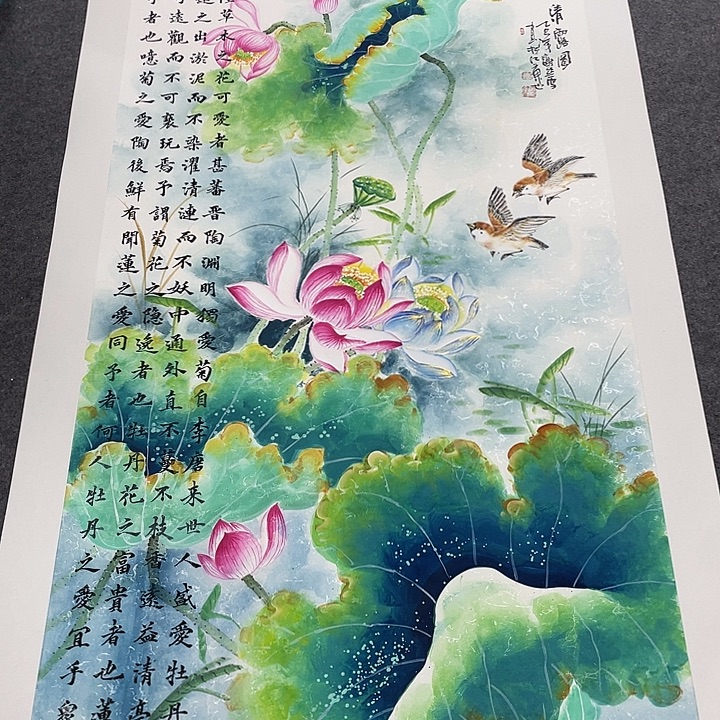 清露图
草木之花可愛者甚蕃晋陶淵明獨愛菊自李唐来世人盛愛牡丹
之出淤泥而不染濯清漣而不妖中通外直不蔓不枝香遠益清亭
遠觀而不可褻玩焉予謂菊花之隐逸者也牡丹花之富貴者也蓮
者也噫菊之愛陶後鮮有聞蓮之愛同予者何人牡丹之愛宜乎